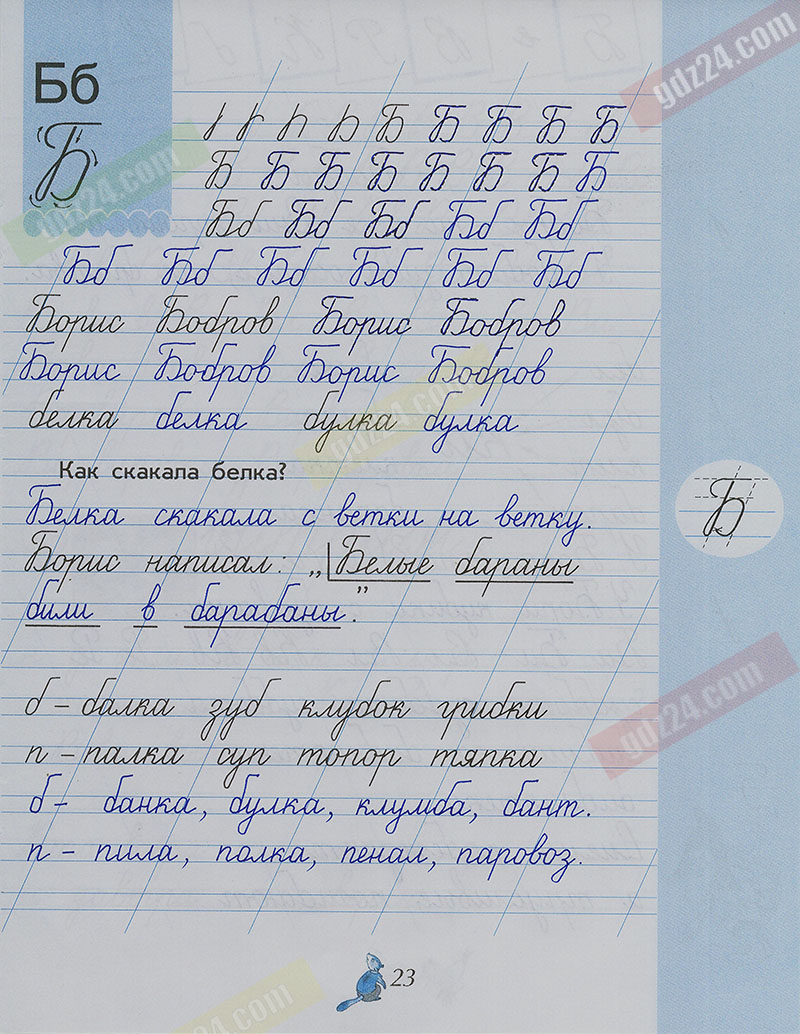 gdz24.com
Бб
Б
Б Б Б Б Б
Б Б Б Б Б Б Б Б
gdz24.com
Бб Бб Бб Бб Бб
Бб Бб Бб Бб Бб Бб
Борис Бобров Борис Бобров
Борис Бобров Борис Бобров
белка белка булка булка
gdz24.com
Как скакала белка?
Белка скакала с ветки на ветку.
Б
Борис написал: „Белые бараны
били в барабаны”.
gdz24.com
б – балка зуб клубок грибки
п – палка суп топор тяпка
б – банка, булка, клумба, бант.
п – пила, полка, пенал, паровоз.
23